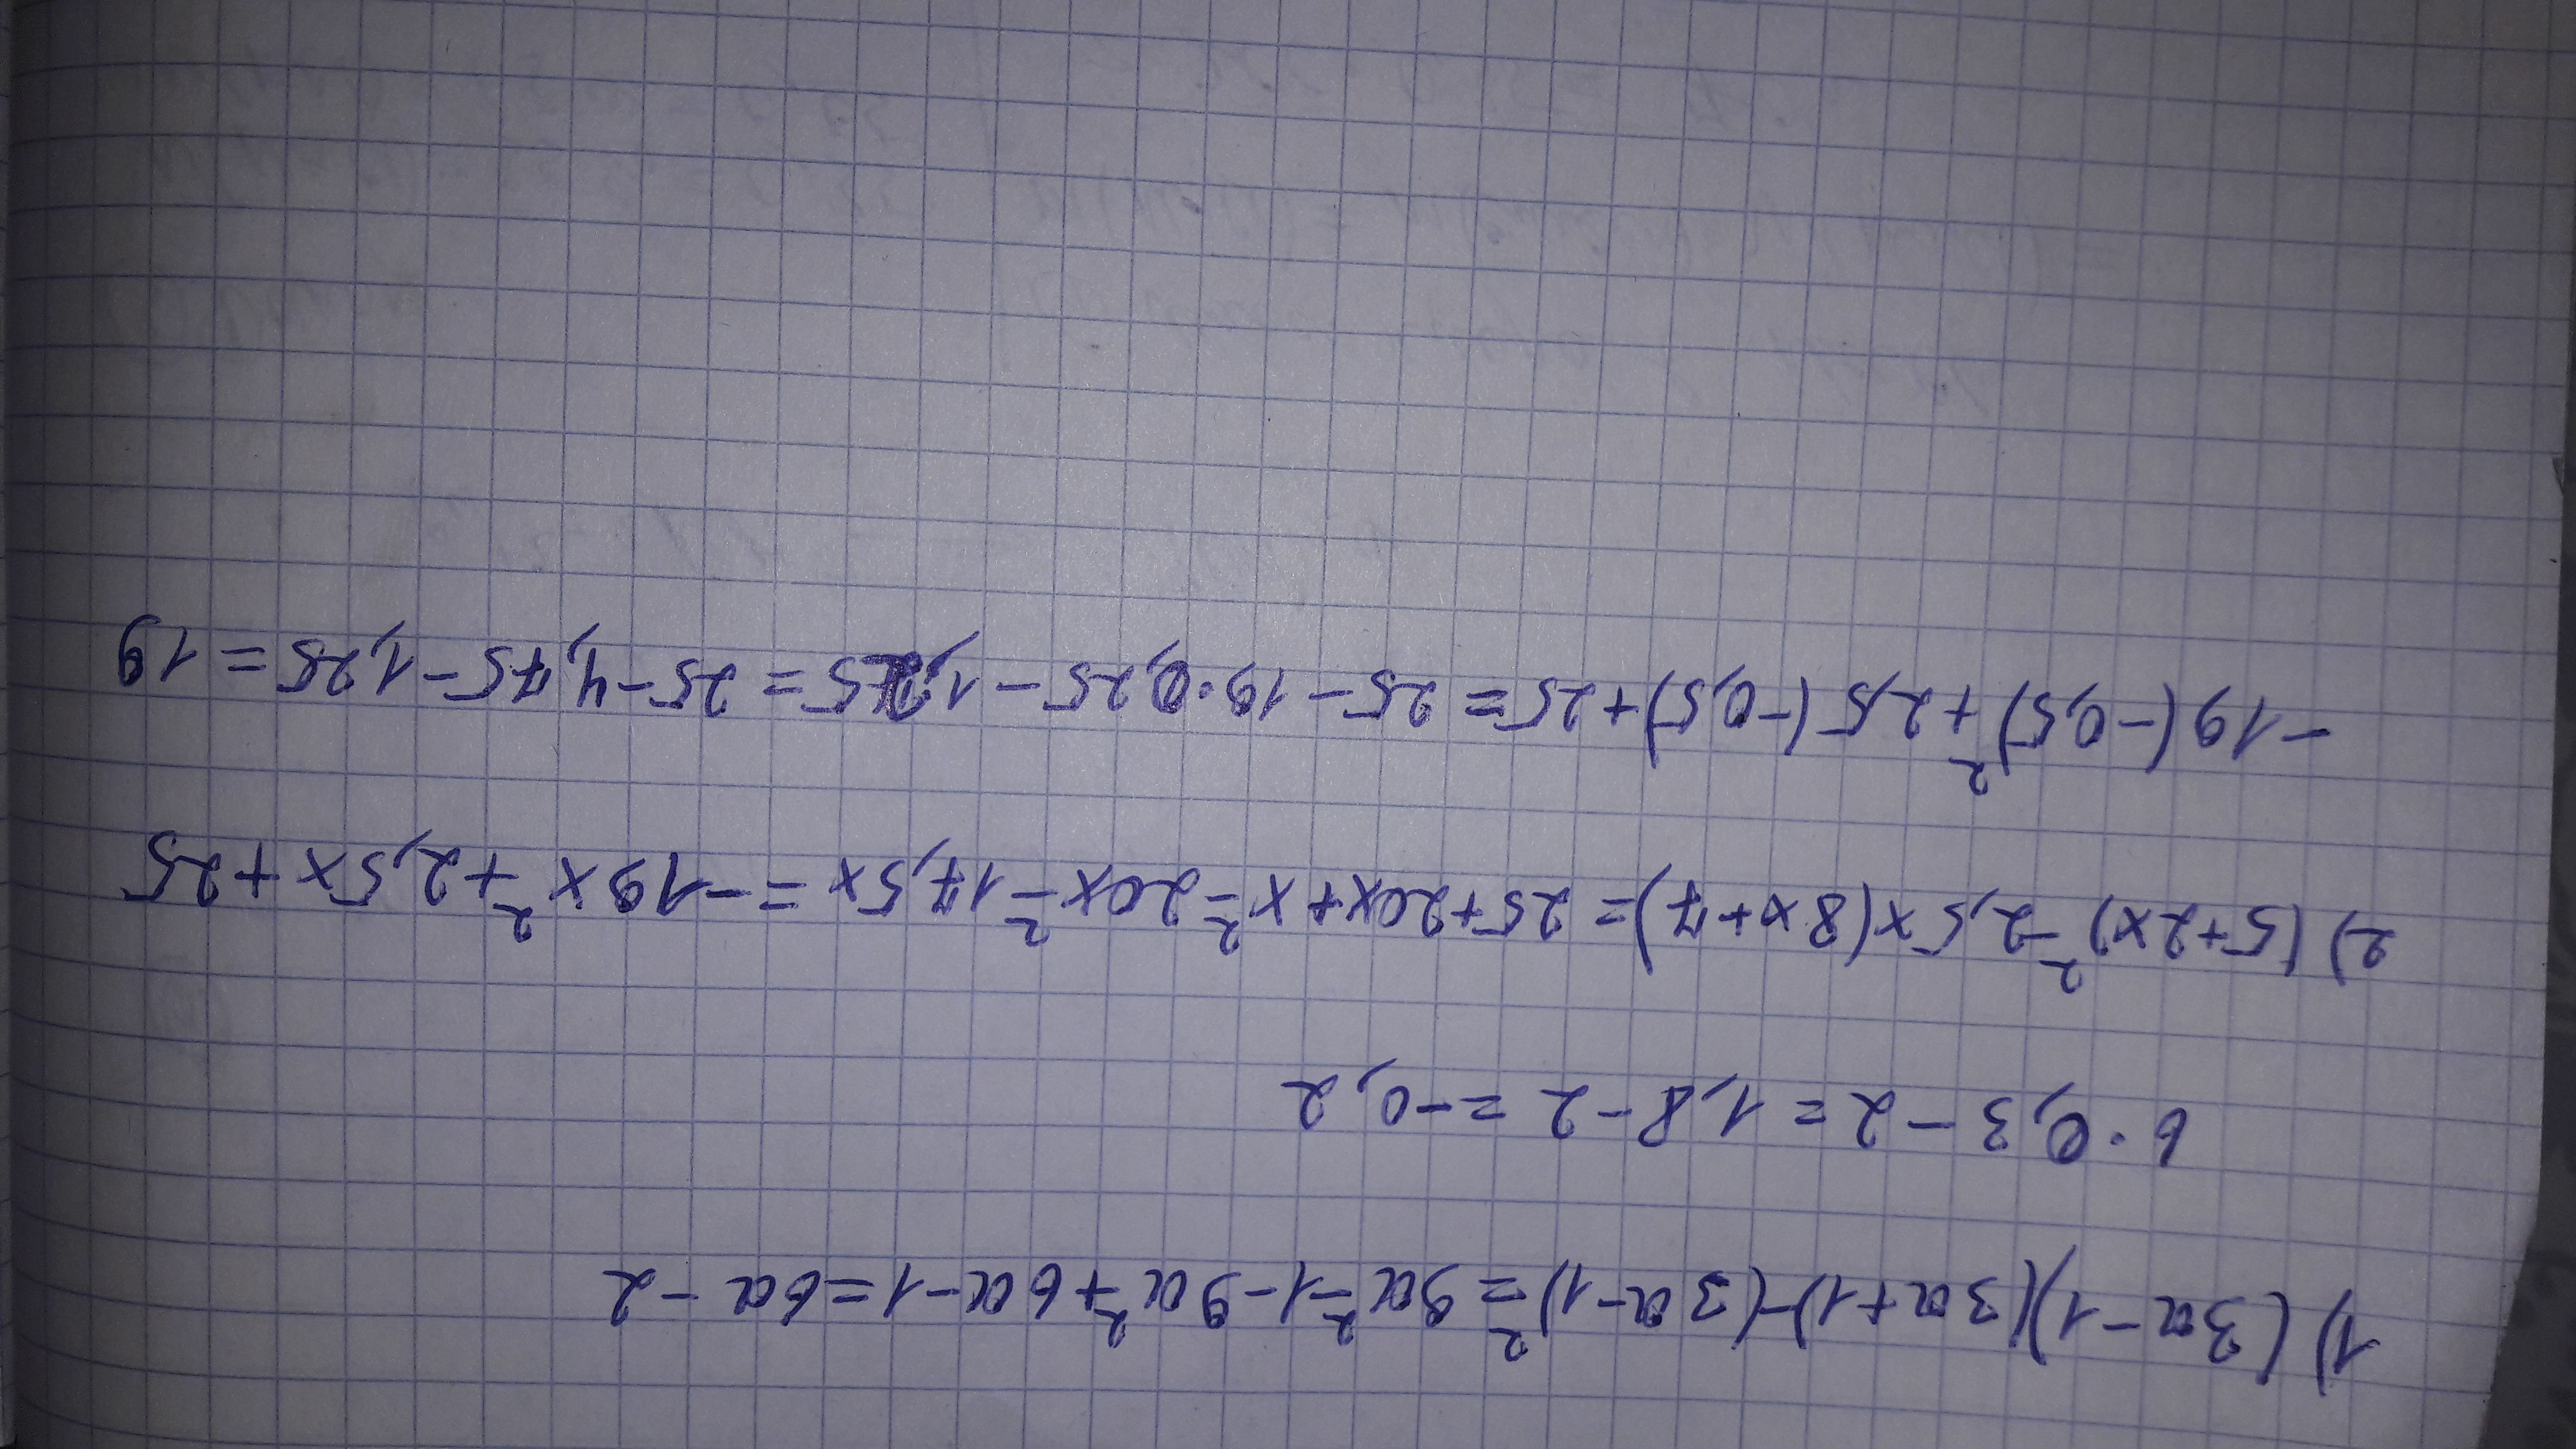 1) (3a-1)(3a+1)-(3a-1)²=9a²-1-9a²+6a-1=6a-2
6·0,3-2=1,8-2=-0,2
2) (5+2x)²-2,5x(8x+7)=25+20x+x²-20x²-17,5x=-19x²+2,5x+25
-19(-0,5)²+2,5(-0,5)+25=25-19·0,25-1,25=25-4,75-1,25=19